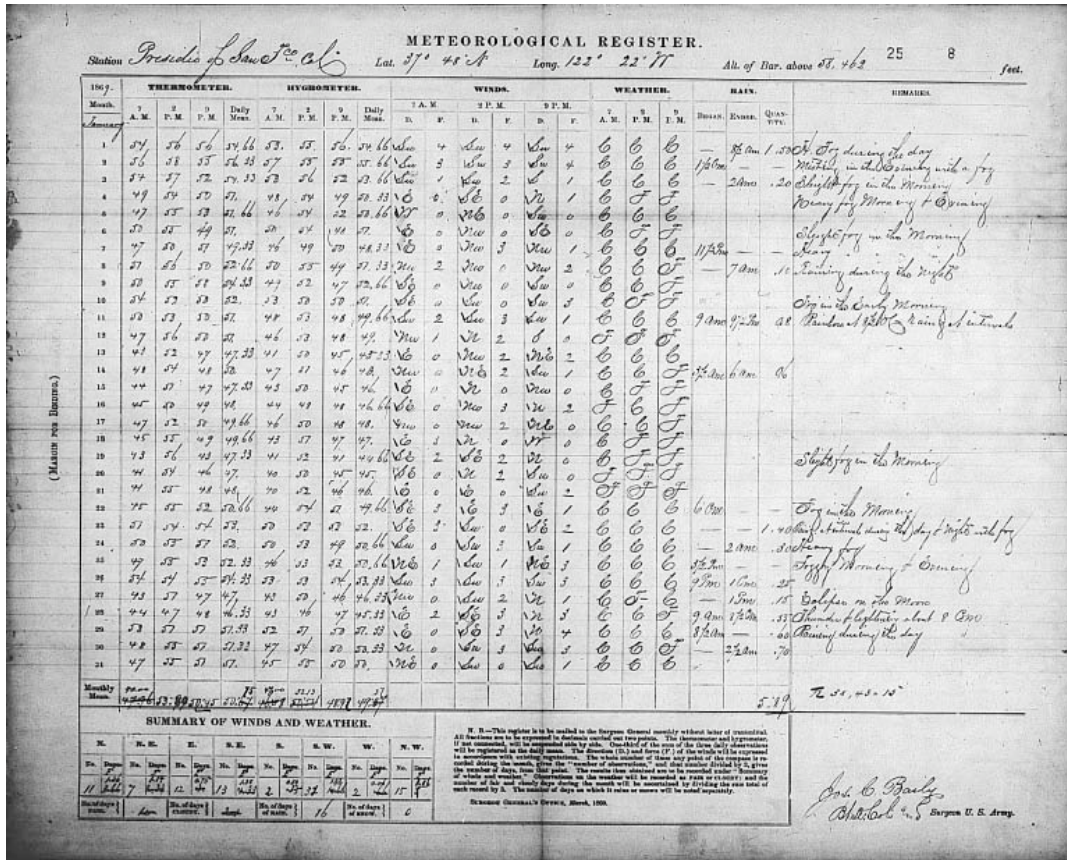 METEOROLOGICAL REGISTER.
25 8
Station Presidio of San Fco. Cal Lat. 37° 48' N Long. 122° 22' W Alt. of Bar. above 58.462 feet.
1869. THERMOMETER. HYGROMETER. WINDS. WEATHER. RAIN. REMARKS.
Month. 7 A. M. 2 P. M. 9 P. M. Daily Mean. 7 A. M. 2 P. M. 9 P. M. Daily Mean. 7 A. M. 2 P. M. 9 P. M. 7 A. M. 2 P. M. 9 P. M. BEGAN. ENDED. QUANTITY.
D. F. D. F. D. F.
January
1 54 56 56 Sw 4 Sw 4 Sw 4 C C C — Fog during the day
2 56 58 55 56.33 57 55 55 55.66 Sw 3 Sw 3 Sw 4 C C C — in the Evening with a fog
3 54 57 52 54.33 53 56 52 53.66 Sw 1 Sw 2 S 1 C C C — 2 am .20 Slight fog in the Morning
4 49 54 50 51. 48 54 49 50.33 E SE 0 N 1 C F F Heavy fog Morning & Evening
5 47 55 53 51.66 46 54 52 50.66 W 0 NE 0 Sw 0 C C C
6 50 55 49 51. E 0 Nw 0 SE 0 C F F Slight fog in the Morning
7 47 50 51 49.33 46 49 50 48.33 E 0 Nw 3 Nw 1 C C C —
8 51 56 50 52.66 50 55 49 51.33 Nw 2 Nw 0 Nw 2 C C F — 7 am .10 Raining during the Night
9 50 55 58 54.33 SE 0 Nw 0 Sw 0 C C F
10 54 52 50 52. 53 50 50 51. SE 0 Sw 0 Sw 3 C F F Fog in the Early Morning
11 50 53 50 51. 48 53 48 49.66 Sw 2 Sw 3 Sw 1 C C C 9 am
12 47 56 50 51. 46 53 48 49. Nw 1 N 2 S 0 F F F
13 43 52 47 47.33 41 50 45 45.33 E 0 Nw 2 NE 2 C C C
14 48 54 48 50. 47 51 46 48. Nw 0 NE 2 Sw 1 C C F 6 am
15 44 51 47 47.33 43 50 45 46. E 0 N 0 Nw 0 C F F
16 45 50 49 48. 44 48 48 46.66 SE 0 Nw 3 N 2 F
17 47 52 50 49.66 46 50 48 48. Nw 0 Nw 2 NE 0 C C F
18 45 55 49 49.66 43 51 47 47. E 3 N 0 W 0 C F F
19 43 56 43 47.33 41 52 41 44.66 SE 2 SE 2 N 0 C F F Slight fog in the Morning
20 41 54 46 47. 40 50 45 45. SE 0 N 2 Sw 0 F F F
21 41 55 48 48. 40 52 46 46. E 0 E 0 Sw 2 F F F
22 45 55 52 50.66 44 54 51 49.66 SE 3 E 3 E 1 C C C — — Fog in the Morning
23 51 54 54 53. 50 53 53 52. SE 3 Sw 0 SE 2 C C C — — 1.40 during the day & night with fog
24 50 55 51 52. 50 53 49 50.66 Sw 0 Sw 3 Sw 1 C C C — 2 am .30 Heavy fog
25 49 55 53 52.33 46 53 53 50.66 NE 1 Sw 1 NE 3 C C C — — Foggy Morning & Evening
26 54 54 55 54.33 53 53 54 53.33 Sw 3 Sw 3 Sw 3 C C C 9 Pm .25
27 43 51 47 47. 43 50 46 46.33 Nw 0 Sw 2 N 1 C F C — 1 Pm .15 Eclipse on the Moon
28 44 47 48 46.33 43 46 47 45.33 E 2 SE 3 N 3 C C F 9 am .55 Thunder & lightning about 8 Am
29 53 51 51 51.33 52 51 50 51.33 E 0 SE 3 N 4 C C C 8½ am — .60 Raining during the day
30 48 55 51 51.33 47 54 50 50.33 N 0 Sw 3 Sw 3 C C F — .70
31 47 55 51 51. 45 55 50 50. NE 0 Sw 0 Sw 1 C C C
Monthly Mean. 50.45 5.89
(MARGIN FOR BINDING.)
SUMMARY OF WINDS AND WEATHER.
N. N. E. E. S. E. S. S. W. W. N. W.
No. Days. No. Days. No. Days. No. Days. No. Days. No. Days. No. Days. No. Days.
11 7 12 13 2 32 2 15
No. of days FAIR. No. of days CLOUDY. No. of days of RAIN. 16 No. of days of SNOW. 0
N. B.—This register is to be mailed to the Surgeon General monthly without letter of transmittal.
All fractions are to be expressed in decimals carried out two points. The thermometer and hygrometer,
if not connected, will be suspended side by side. One-third of the sum of the three daily observations
will be registered as the daily mean. The direction (D.) and force (F.) of the winds will be expressed
in accordance with existing regulations. The whole number of times any point of the compass is re-
corded during the month, gives the "number of observations," and that number divided by 3, gives
the number of days, from that point. The results thus obtained are to be recorded under "Summary
of winds and weather." Observations on the weather will be recorded as FAIR or CLOUDY; and the
number of fair and cloudy days during the month will be ascertained by dividing the sum total of
each record by 3. The number of days on which it rains or snows will be noted separately.
SURGEON GENERAL'S OFFICE, March, 1868.
Jos. C. Baily
Surgeon U. S. Army.